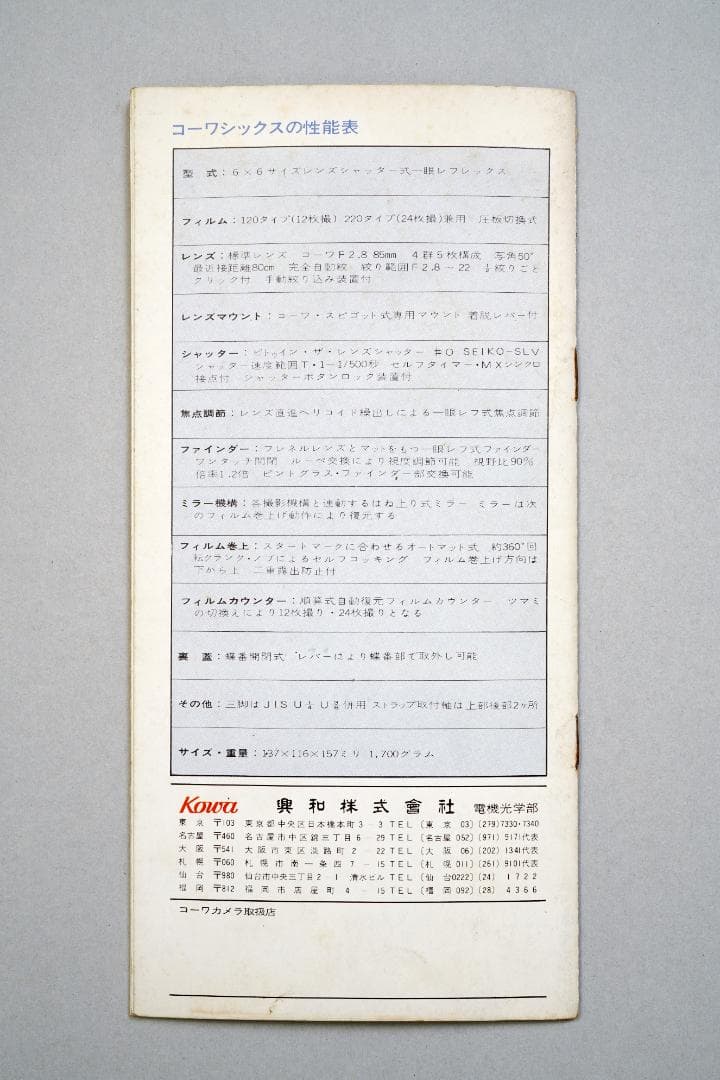 コーワシックスの性能表
型　式：6×6サイズレンズシャッター式一眼レフレックス
フィルム：120タイプ(12枚撮) 220タイプ(24枚撮)兼用　圧板切換式
レンズ：標準レンズ　コーワF2.8 85mm　4群5枚構成　写角50°
最近接距離80cm　完全自動絞　絞り範囲F2.8～22　½絞りごと
クリック付　手動絞り込み装置付
レンズマウント：コーワ・スピゴット式専用マウント 着脱レバー付
シャッター：ビトゥイン・ザ・レンズシャッター　#0 SEIKO-SLV
シャッター速度範囲T・1—1/500秒　セルフタイマー・MXシンクロ
接点付　シャッターボタンロック装置付
焦点調節：レンズ直進ヘリコイド繰出しによる一眼レフ式焦点調節
ファインダー：フレネルレンズとマットをもつ一眼レフ式ファインダー
ワンタッチ開閉　ルーペ交換により視度調節可能　視野比90%
倍率1.2倍　ピントグラス・ファインダー部交換可能
ミラー機構：各撮影機構と連動するはね上り式ミラー　ミラーは次
のフィルム巻上げ動作により復元する
フィルム巻上：スタートマークに合わせるオートマット式　約360°回
転クランク・ノブによるセルフコッキング　フィルム巻上げ方向は
下から上　二重露出防止付
フィルムカウンター：順算式自動復元フィルムカウンター　ツマミ
の切換えにより12枚撮り・24枚撮りとなる
裏　蓋：蝶番開閉式　レバーにより蝶番部で取外し可能
その他：三脚はJIS U¼ U⅜併用 ストラップ取付軸は上部後部2ヶ所
サイズ・重量：137×116×157ミリ 1,700グラム
Kowa 興和株式會社 電機光学部
東　京 〒103 東京都中央区日本橋本町3－3 TEL〔東　京 03〕(279)7330・7340
名古屋 〒460 名古屋市中区錦三丁目6－29 TEL〔名古屋 052〕(971) 9171代表
大　阪 〒541 大阪市東区淡路町2－22 TEL〔大　阪 06〕(202) 1341代表
札　幌 〒060 札幌市南一条西7－15 TEL〔札　幌 011〕(261) 9101代表
仙　台 〒980 仙台市中央三丁目2－1 清水ビル TEL〔仙　台0222〕(24) 1722
福　岡 〒812 福岡市店屋町4－15 TEL〔福　岡 092〕(28) 4366
コーワカメラ取扱店